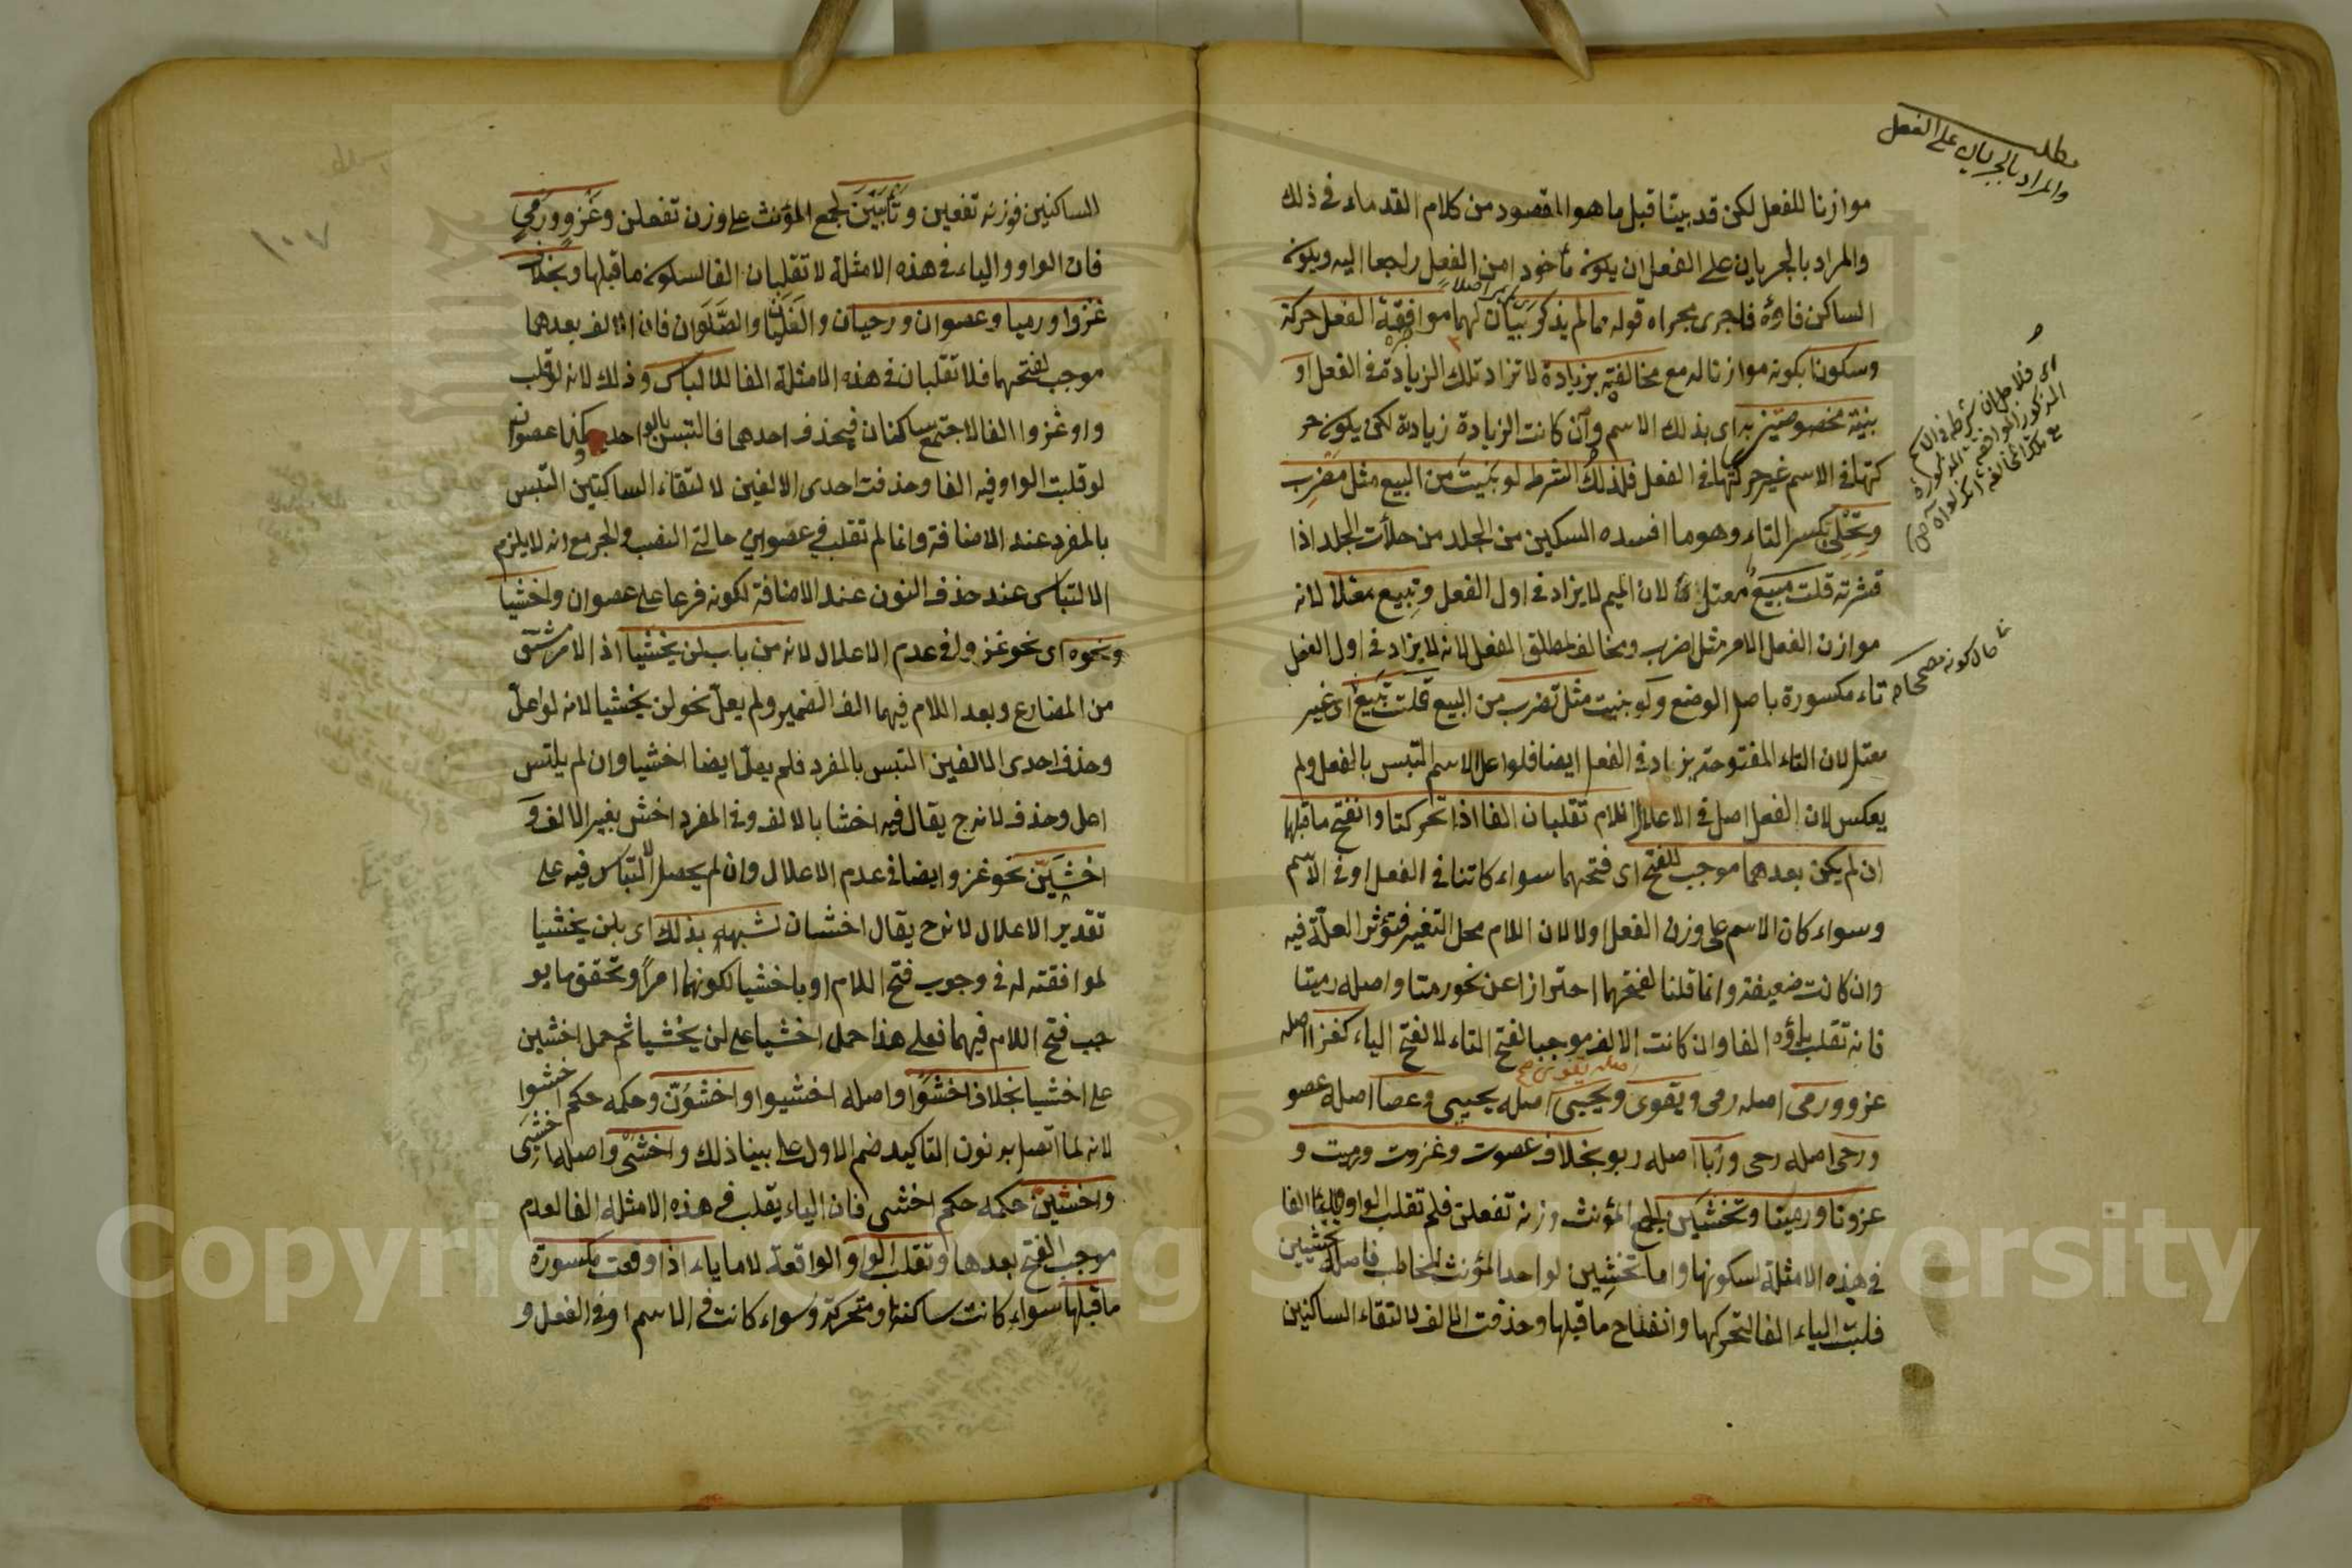 مطلب
والمراد بالجريان على الفعل
موازنا للفعل لكن قد بيتا قبل ما هو المقصود من كلام القدماء في ذلك
والمراد بالجريان على الفعل ان يكون مأخوذا من الفعل راجعا اليه ويكون
الساكن فاؤه فاجرى مجراه قوله مما لم يذكر بيان لهما موافقة الفعل حركة
وسكونا بكونه موازنا له مع مخالفته بزيادة لا تزاد تلك الزيادة في الفعل او
بنية مخصوصتين به اى بذلك الاسم وآن كانت الزيادة زيادة لكن يكون حر
كتها في الاسم غير حركتها في الفعل فلذلك الشرط لو بنيت من البيع مثل مضرب
وتحلئ بكسر التاء وهو ما افسده السكين من الجلد من حلأت الجلد اذا
قشرته قلت مبيع معتلا لان الميم لا يزاد في اول الفعل وتبيع معلا لانه
موازن الفعل الامر مثل اضرب ومخالف لمطلق الفعل لانه لا يزاد في اول الفعل
تاء مكسورة باصل الوضع ولو بنيت مثل تضرب من البيع قلت تبيع اى غير
حال كونه مصححا
معتل لان التاء المفتوحة يزاد في الفعل ايضا فلو اعل الاسم التبس بالفعل ولم
يعكس لان الفعل اصل في الاعلال اللام تقلبان الفا اذا تحركتا وانفتح ما قبلها
ان لم يكن بعدهما موجب للفتح اى فتحهما سواء كانتا في الفعل او في الاسم
وسواء كان الاسم على وزن الفعل او لا لان اللام محل التغير فتؤثر العلة فيه
وان كانت ضعيفة وانما قلنا لفتحهما احترازا عن نحو رمتا واصله رميتا
فانه تقلب ياؤه الفا وان كانت الالف موجبا لفتح التاء لا لفتح الياء كغزا اصله
غزو ورمى اصله رمى ويقوى ويحيى اصله يحيى وعصا اصله عصو
ورحى اصله رحى وربا اصله ربو بخلاف عصوت وغزوت ورميت و
غزونا ورمينا وتخشين لجمع المؤنث وزنه تفعلن فلم تقلب الواو والياء الفا
في هذه الامثلة لسكونها واما تخشين لواحد المؤنث المخاطب فاصله تخشيين
قلبت الياء الفا لتحركها وانفتاح ما قبلها وحذفت الالف لالتقاء الساكنين
١٠٧
الساكنين فوزنه تفعين وتأبين لجمع المؤنث على وزن تفعلن وغزو ورمي
فان الواو والياء في هذه الامثلة لا تقلبان الفا لسكون ما قبلها وبخلاف
غزوا ورميا وعصوان ورحيان والغليان والصلوان فان الالف بعدهما
موجب لفتحهما فلا تقلبان في هذه الامثلة الفا للالباس وذلك لانه لو قلب
واو غزوا الفا لاجتمع ساكنان فيحذف احدهما فالتبس بالواحد وكذا عصوان
لو قلبت الواو فيه الفا وحذفت احدى الالفين لالتقاء الساكنين التبس
بالمفرد عند الاضافة وانما لم تقلب في عصوين حالتى النصب والجر مع انه لا يلزم
الالتباس عند حذف النون عند الاضافة لكونه فرعا على عصوان واخشيا
ونحوه اى نحو غزوا في عدم الاعلال لانه من باب لن يخشيا اذ الامر مشتق
من المضارع وبعد اللام فيهما الف الضمير ولم يعل نحو لن يخشيا لانه لو اعل
وحذف احدى الالفين التبس بالمفرد فلم يعل ايضا اخشيا وان لم يلتبس
اعل وحذف لانه ح يقال فيه اخشا بالالف وفي المفرد اخش بغير الالف و
اخشين نحو غزوا ايضا في عدم الاعلال وان لم يحصل التباس فيه على
تقدير الاعلال لانه ح يقال اخشان لشبهه بذلك اى بلن يخشيا
لموافقته له في وجوب فتح اللام او باخشيا لكونهما امرا وتحقق ما يو
جب فتح اللام فيهما فعلى هذا حمل اخشيا على لن يخشيا ثم حمل اخشين
على اخشيا بخلاف اخشوا واصله اخشيوا واخشون وحكمه حكم اخشوا
لانه لما اتصل به نون التاكيد ضم الاول على بينا ذلك واخشى واصله اخشيى
واخشين حكمه حكم اخشى فان الياء يقلب في هذه الامثلة الفا لعدم
موجب الفتح بعدها وتقلب الواو الواقعة لاما ياء اذا وقعت مكسورة
ما قبلها سواء كانت ساكنة او متحركة وسواء كانت في الاسم او في الفعل و
Copyright © King Saud University